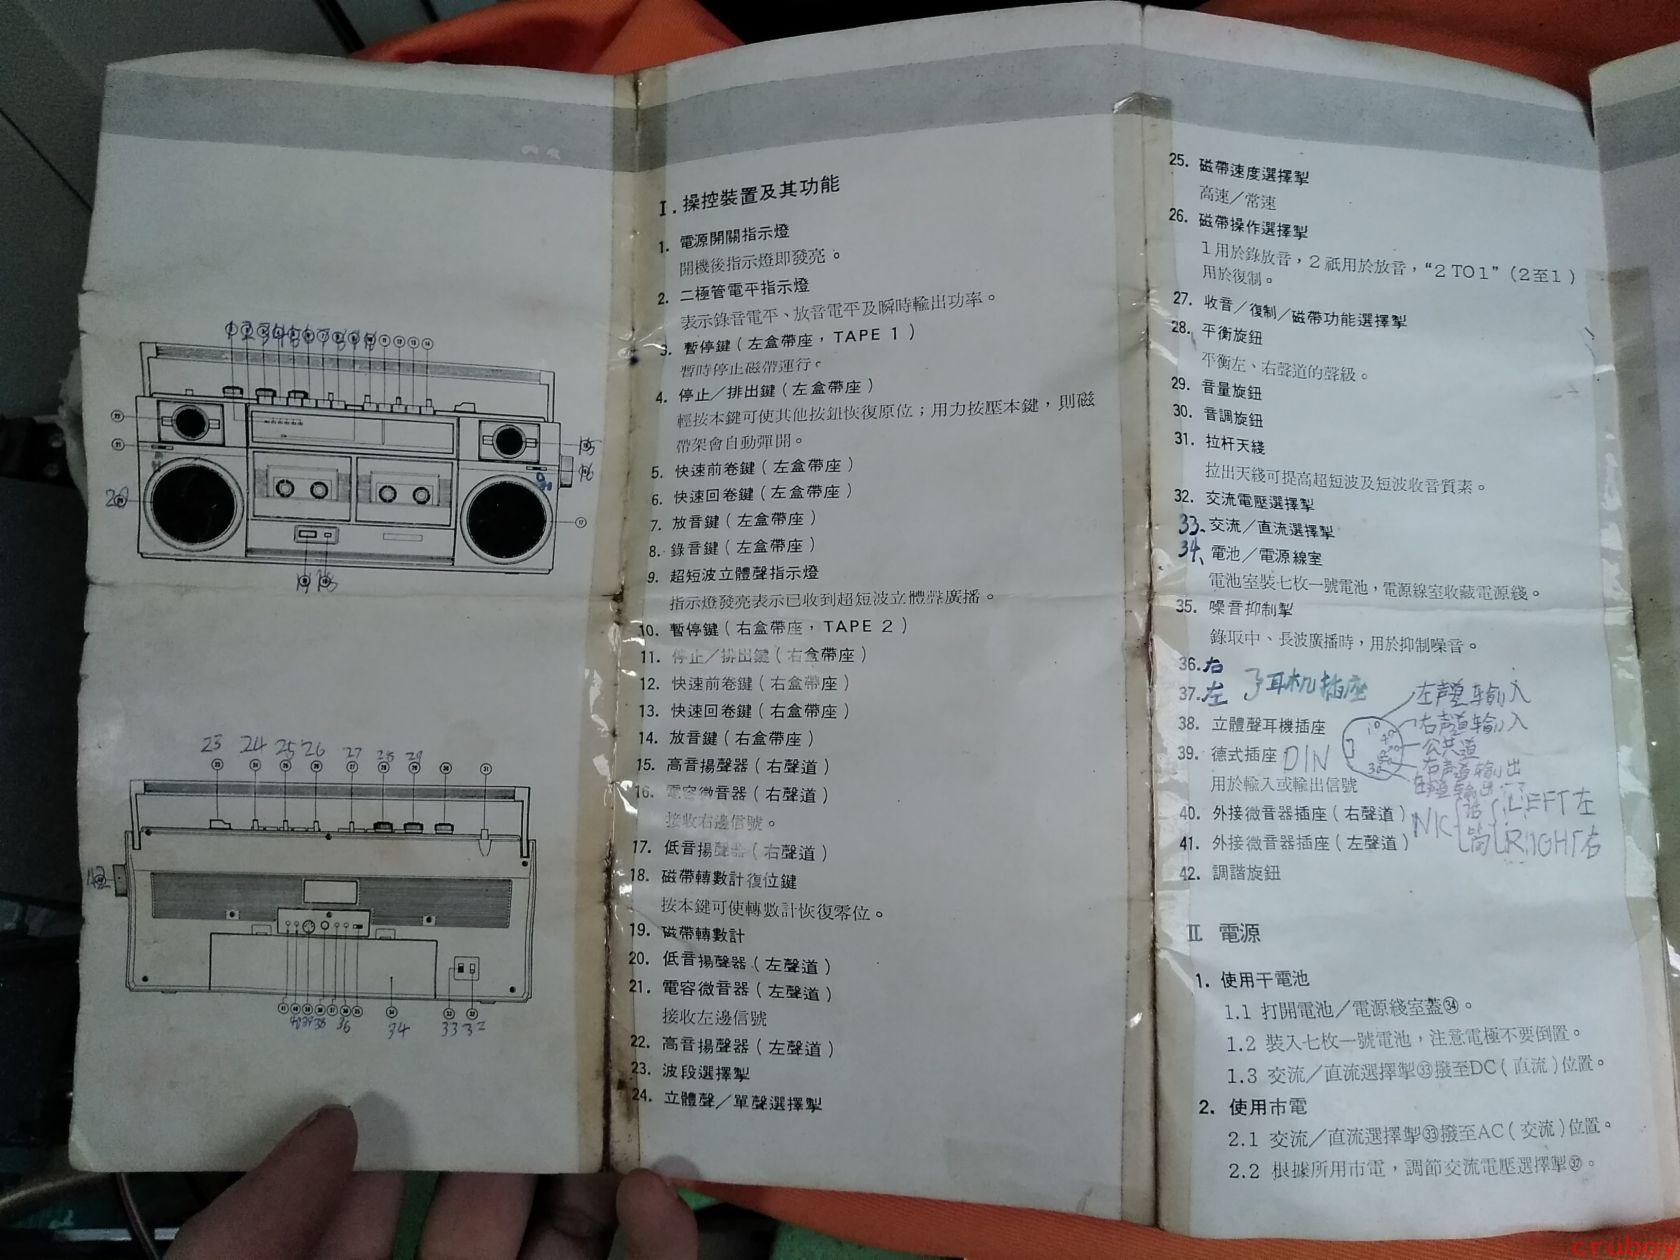 I. 操控裝置及其功能
1. 電源開關指示燈
開機後指示燈即發亮。
2. 二極管電平指示燈
表示錄音電平、放音電平及瞬時輸出功率。
3. 暫停鍵(左盒帶座，TAPE 1)
暫時停止磁帶運行。
4. 停止/排出鍵(左盒帶座)
輕按本鍵可使其他按鈕恢復原位；用力按壓本鍵，則磁
帶架會自動彈開。
5. 快速前卷鍵(左盒帶座)
6. 快速回卷鍵(左盒帶座)
7. 放音鍵(左盒帶座)
8. 錄音鍵(左盒帶座)
9. 超短波立體聲指示燈
指示燈發亮表示已收到超短波立體聲廣播。
10. 暫停鍵(右盒帶座，TAPE 2)
11. 停止/排出鍵(右盒帶座)
12. 快速前卷鍵(右盒帶座)
13. 快速回卷鍵(右盒帶座)
14. 放音鍵(右盒帶座)
15. 高音揚聲器(右聲道)
16. 電容微音器(右聲道)
接收右邊信號。
17. 低音揚聲器(右聲道)
18. 磁帶轉數計復位鍵
按本鍵可使轉數計恢復零位。
19. 磁帶轉數計
20. 低音揚聲器(左聲道)
21. 電容微音器(左聲道)
接收左邊信號
22. 高音揚聲器(左聲道)
23. 波段選擇掣
24. 立體聲/單聲選擇掣
25. 磁帶速度選擇掣
高速/常速
26. 磁帶操作選擇掣
1用於錄放音，2祇用於放音，“2 TO 1”(2至1)
用於復制。
27. 收音/復制/磁帶功能選擇掣
28. 平衡旋鈕
平衡左、右聲道的聲級。
29. 音量旋鈕
30. 音調旋鈕
31. 拉杆天綫
拉出天綫可提高超短波及短波收音質素。
32. 交流電壓選擇掣
33. 交流/直流選擇掣
34. 電池/電源線室
電池室裝七枚一號電池，電源線室收藏電源綫。
35. 噪音抑制掣
錄取中、長波廣播時，用於抑制噪音。
36. 右
37. 左
耳机插座
38. 立體聲耳機插座
39. 德式插座 DIN
用於輸入或輸出信號
40. 外接微音器插座(右聲道)
41. 外接微音器插座(左聲道)
42. 調諧旋鈕
左声道输入
右声道输入
公共道
右声道输出
左声道输出
LEFT左
RIGHT右
II. 電源
1. 使用干電池
1.1 打開電池/電源綫室蓋㉞。
1.2 裝入七枚一號電池，注意電極不要倒置。
1.3 交流/直流選擇掣㉝撥至DC(直流)位置。
2. 使用市電
2.1 交流/直流選擇掣㉝撥至AC(交流)位置。
2.2 根據所用市電，調節交流電壓選擇掣㉜。
23 24 25 26 27 28 29
42
34 33 32